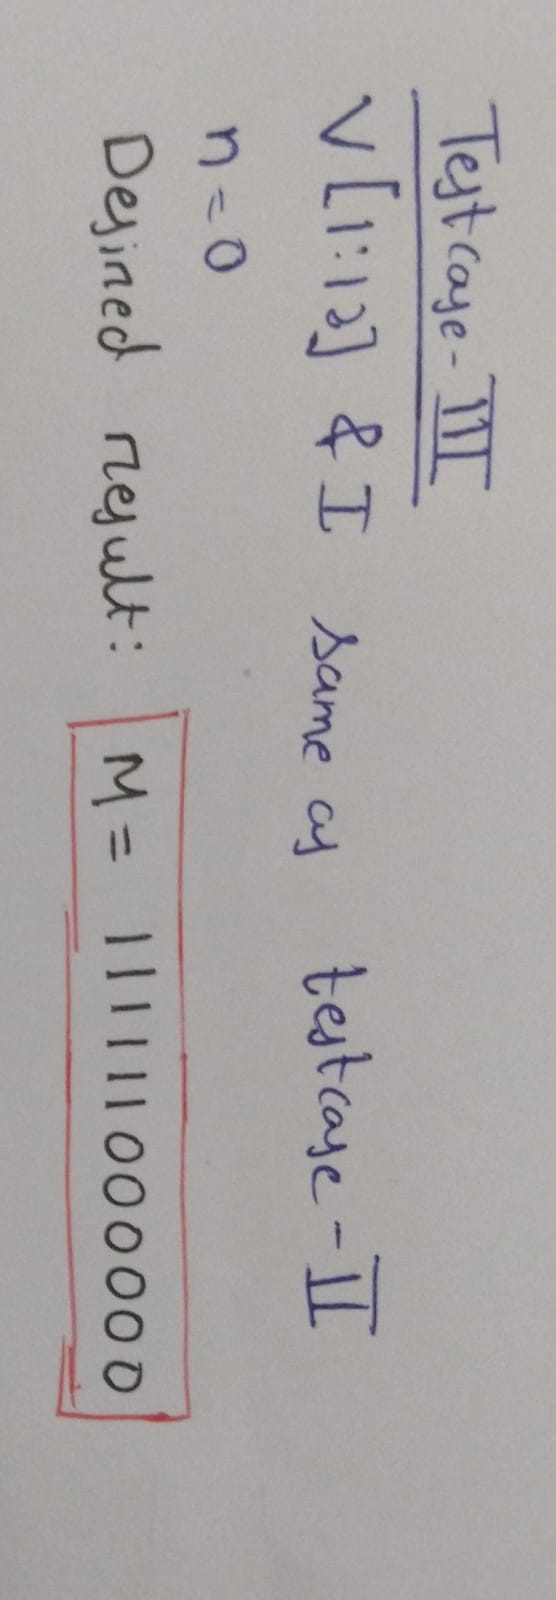 Testcase-III
V[1:12] & I same as testcase-II
n=0
Desired result: M= 111111000000